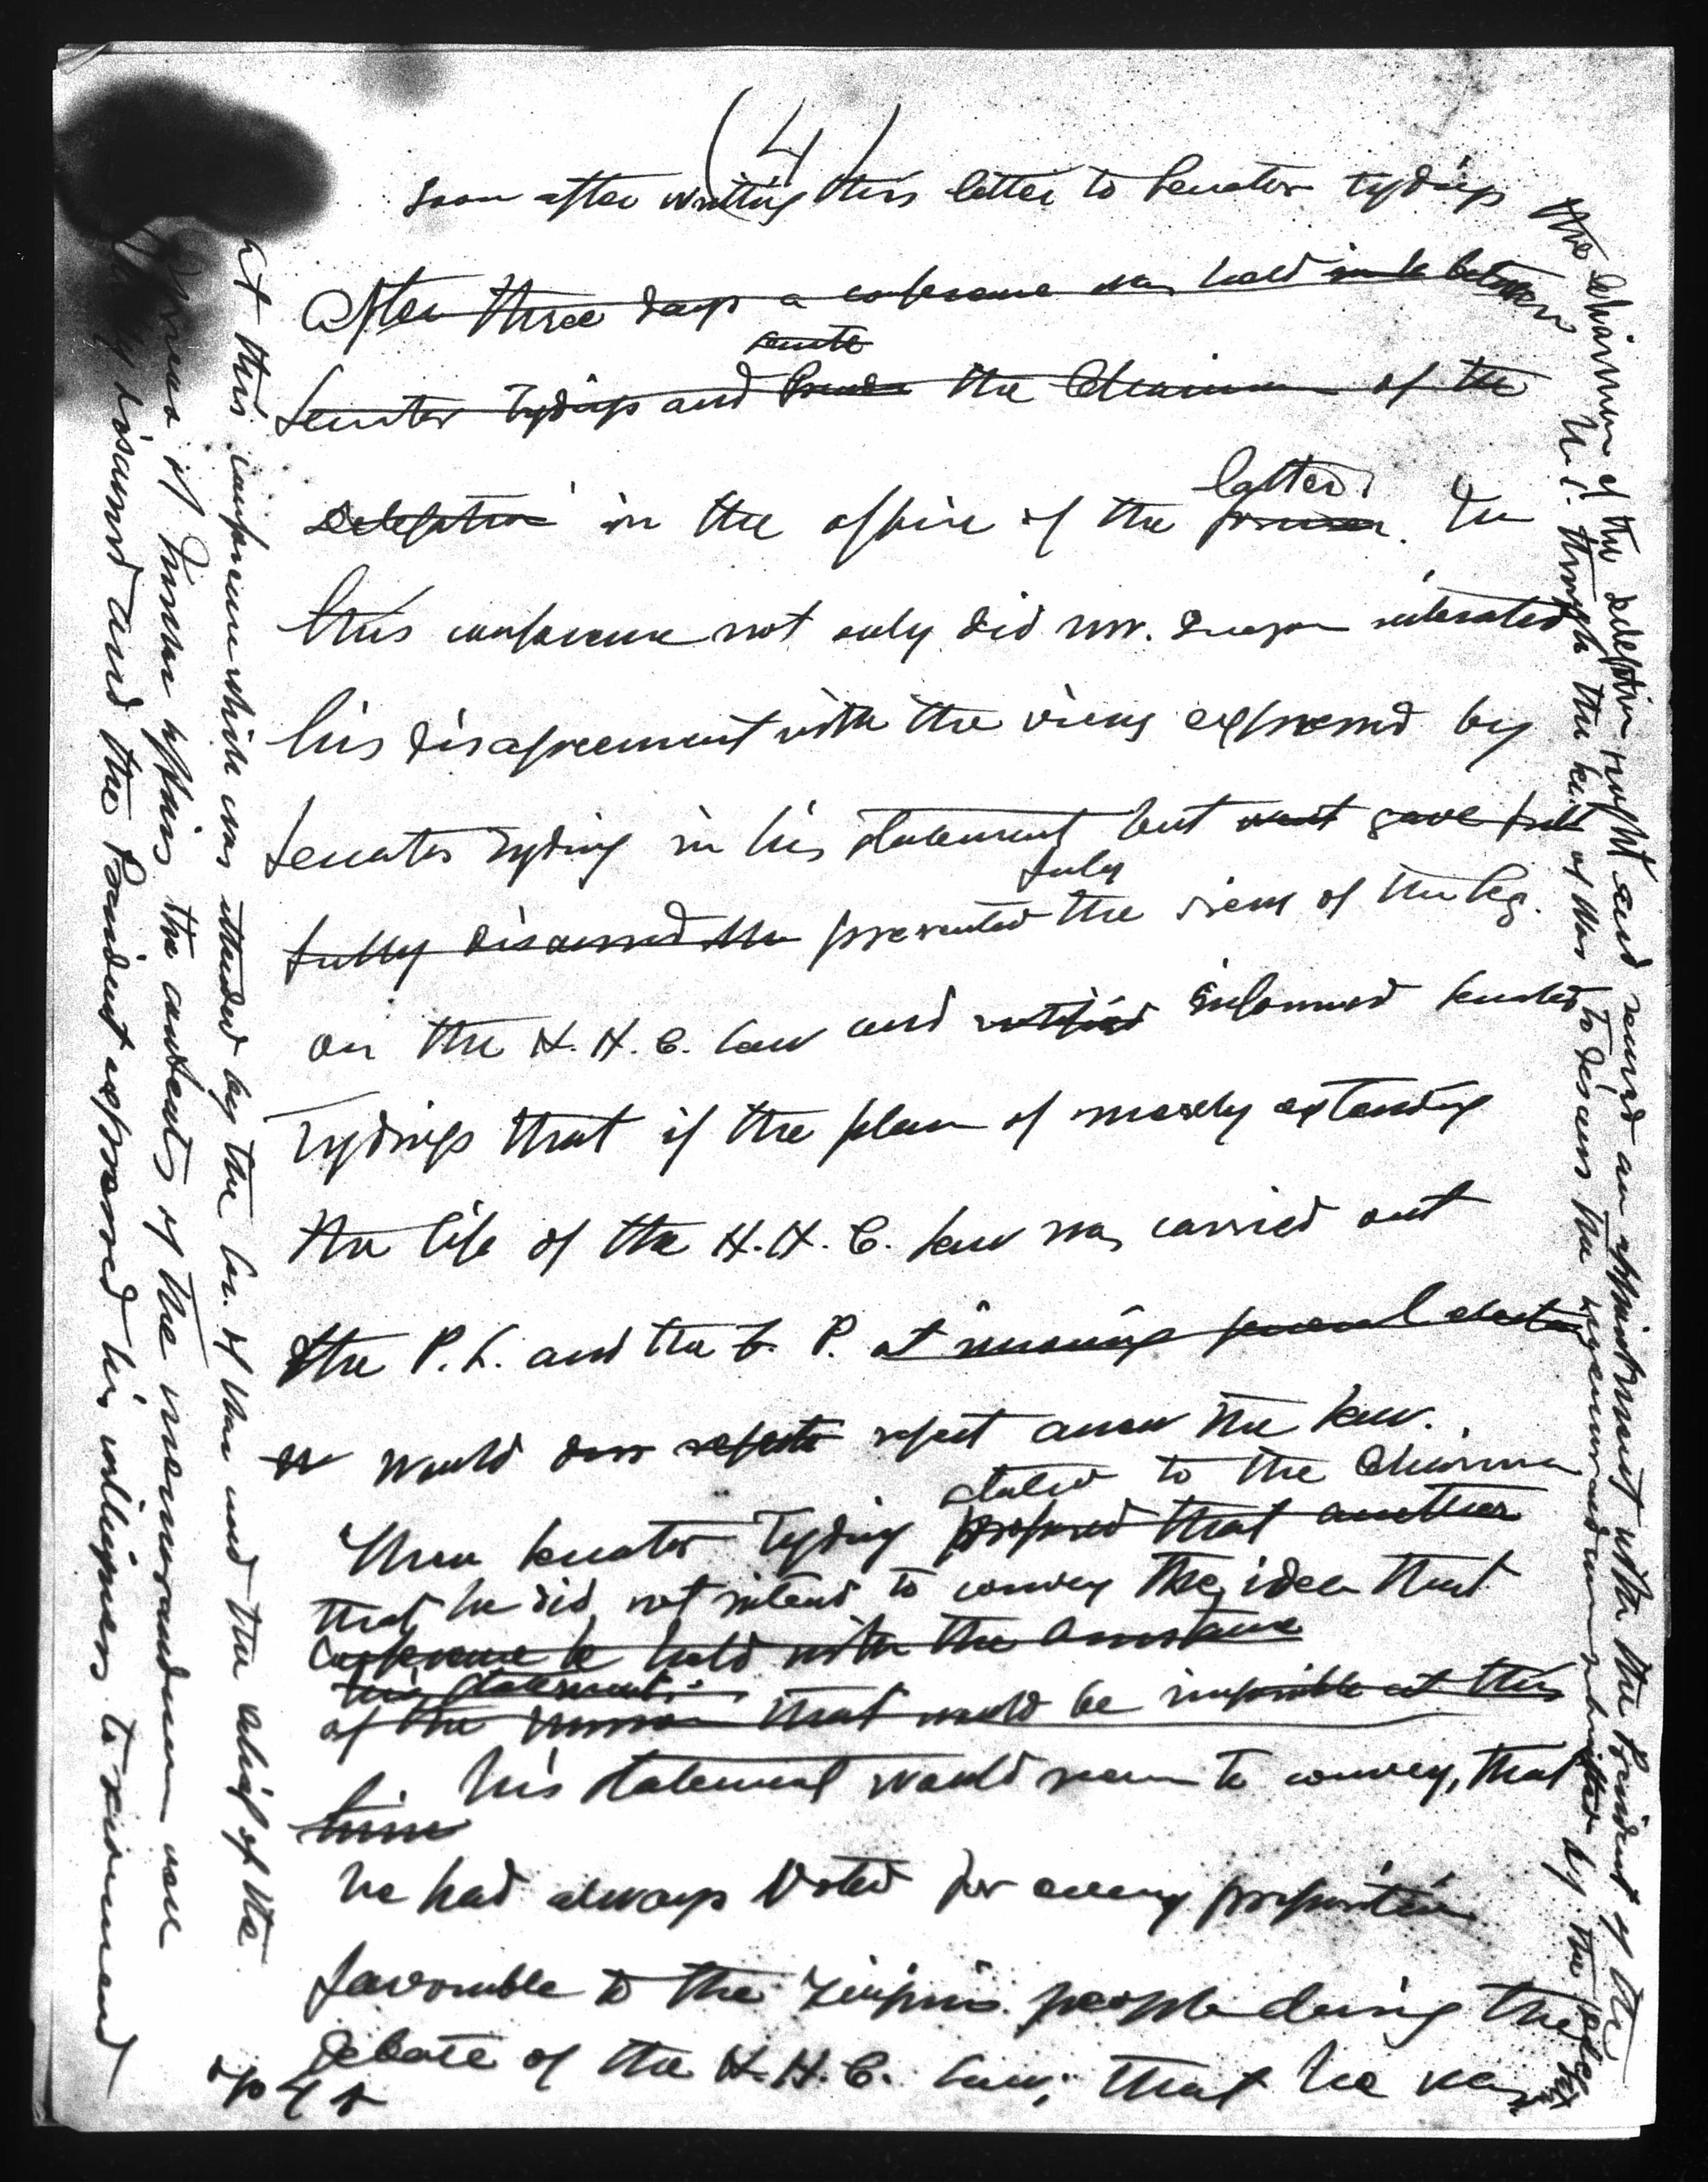 (4)
Soon after writing this letter to Senator Tydings
After three days a conference was held between
Senate
Senator Tydings and the Chairman of the
latter
Delegation in the office of the former. In
this conference not only did Mr. Quezon reiterated
his disagreement with the views expressed by
Senator Tydings in his statement but went gave full
fully
fully discussed the presented the views of the Leg.
on the H. H. C. Law and notified informed Senator
Tydings that if the plan of merely extending
the life of the H. H. C. Law was carried out
the P. L. and the F. P. at ensuing general election
would reject anew the law.
stated to the Chairman
Then Senator Tydings proposed that another
that he did not intend to convey the idea that
conference be held with the assistance
his statement
of the mission that would be impossible at this
his statement would seem to convey, that
time
he had always voted for every proposition
favorable to the Filipino people during the
debate of the H. H. C. Law; that he was
the Chairman of the delegation sought and secured an appointment with the President of the
U.S. through the Sec. of War to discuss the memorandum submitted by the
At this conference which was attended by the Sec. of War and the chief of the
Bureau of Insular Affairs the contents of the memorandum were
fully discussed and the President expressed his willingness to recommend